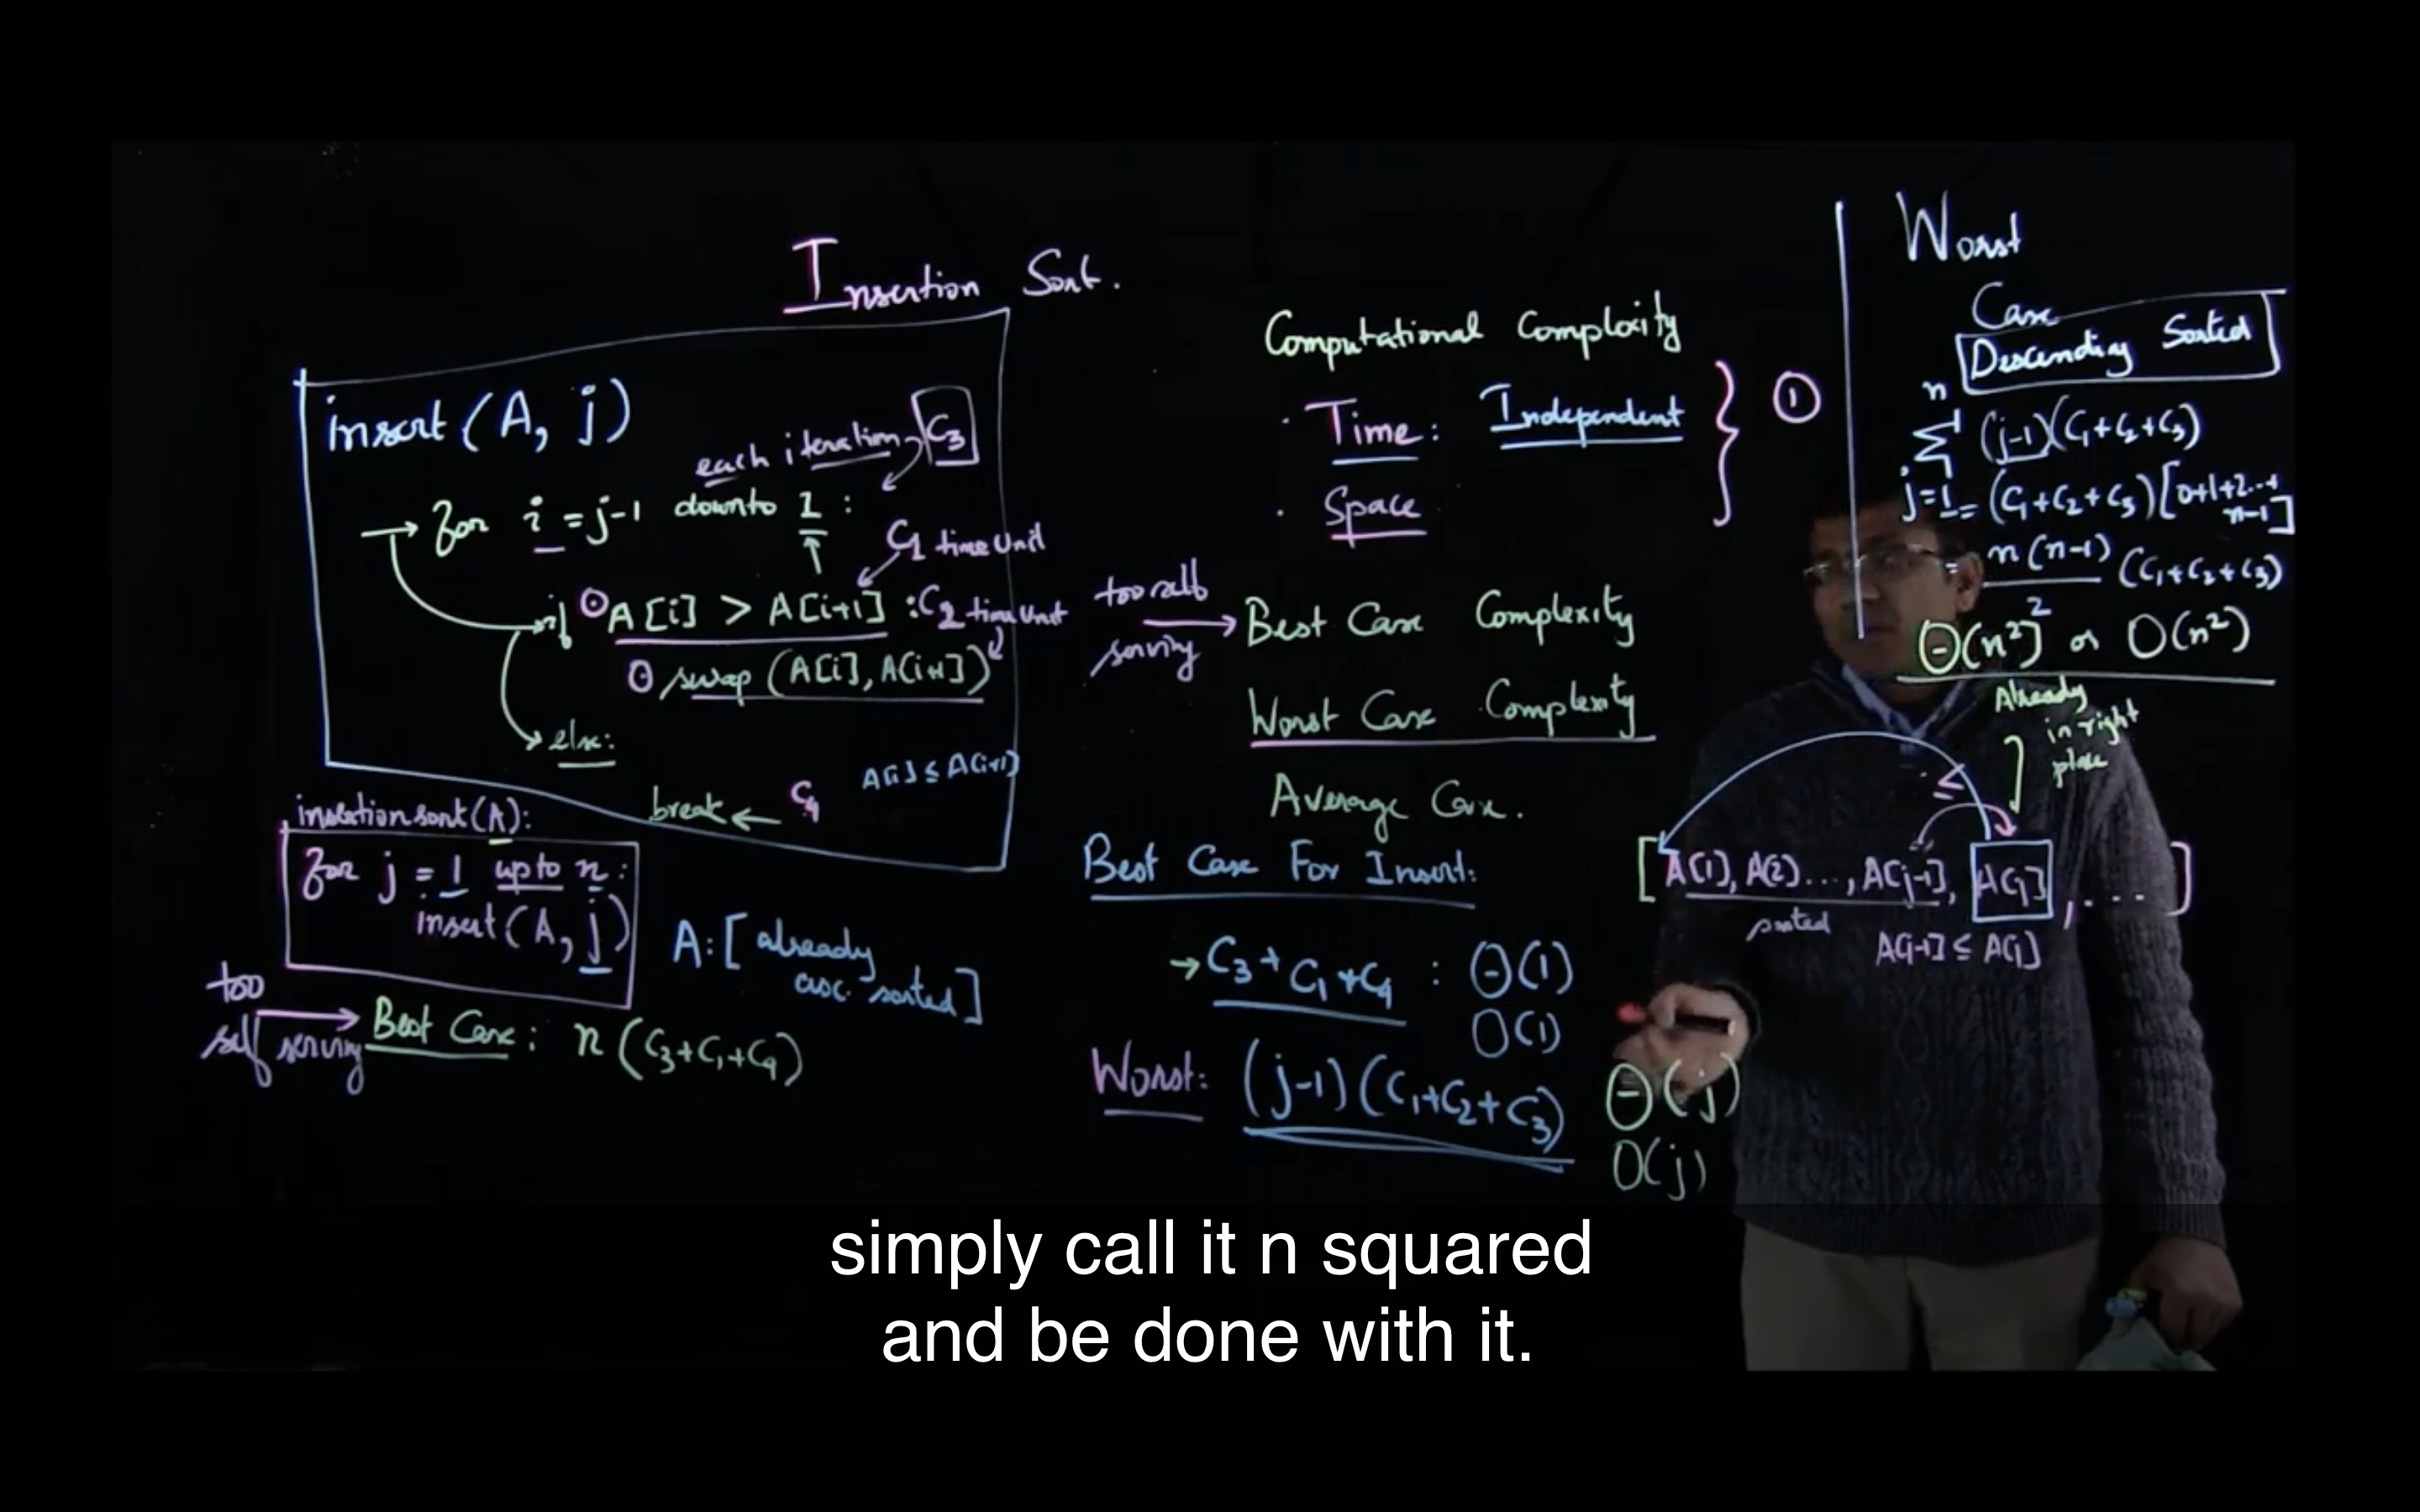 Insertion Sort.
insert(A, j)
each iteration C3
for i = j-1 downto 1 :
C1 time Unit
if A[i] > A[i+1] : C2 time Unit
swap (A[i], A[i+1])
else:
A[i] ≤ A[i+1]
break ← C4
insertion sort(A):
for j = 1 upto n :
insert(A, j)
A: [already
asc. sorted]
too
self serving
Best Case : n (C3+C1+C4)
Computational Complexity
· Time : Independent
· Space
1
too self
serving
Best Case Complexity
Worst Case Complexity
Average Case.
Best Case For Insert:
→ C3 + C1 + C4 : Θ(1)
O(1)
Worst: (j-1)(C1+C2+C3) Θ(j)
O(j)
Worst
Case
Descending Sorted
n
Σ (j-1)(C1+C2+C3)
j=1
= (C1+C2+C3)[0+1+2...+
n-1]
= n(n-1) (C1+C2+C3)
2
Θ(n²) or O(n²)
Already
in right
place
≤
[A[1], A[2]..., A[j-1], A[j], ... ]
sorted
A[j-1] ≤ A[j]
simply call it n squared
and be done with it.